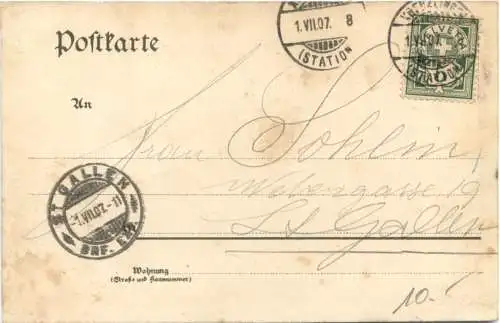 1.VII.07. 8
(STATION
KREUZLINGEN
1.VII.07.
(STATION)
HELVETIA
Postkarte
An
Frau Sohlin
Webergasse 19
St Gallen
ST GALLEN
-1.VII.07.-11
BRF. EXP.
Wohnung
(Straße und Hausnummer)
10.-